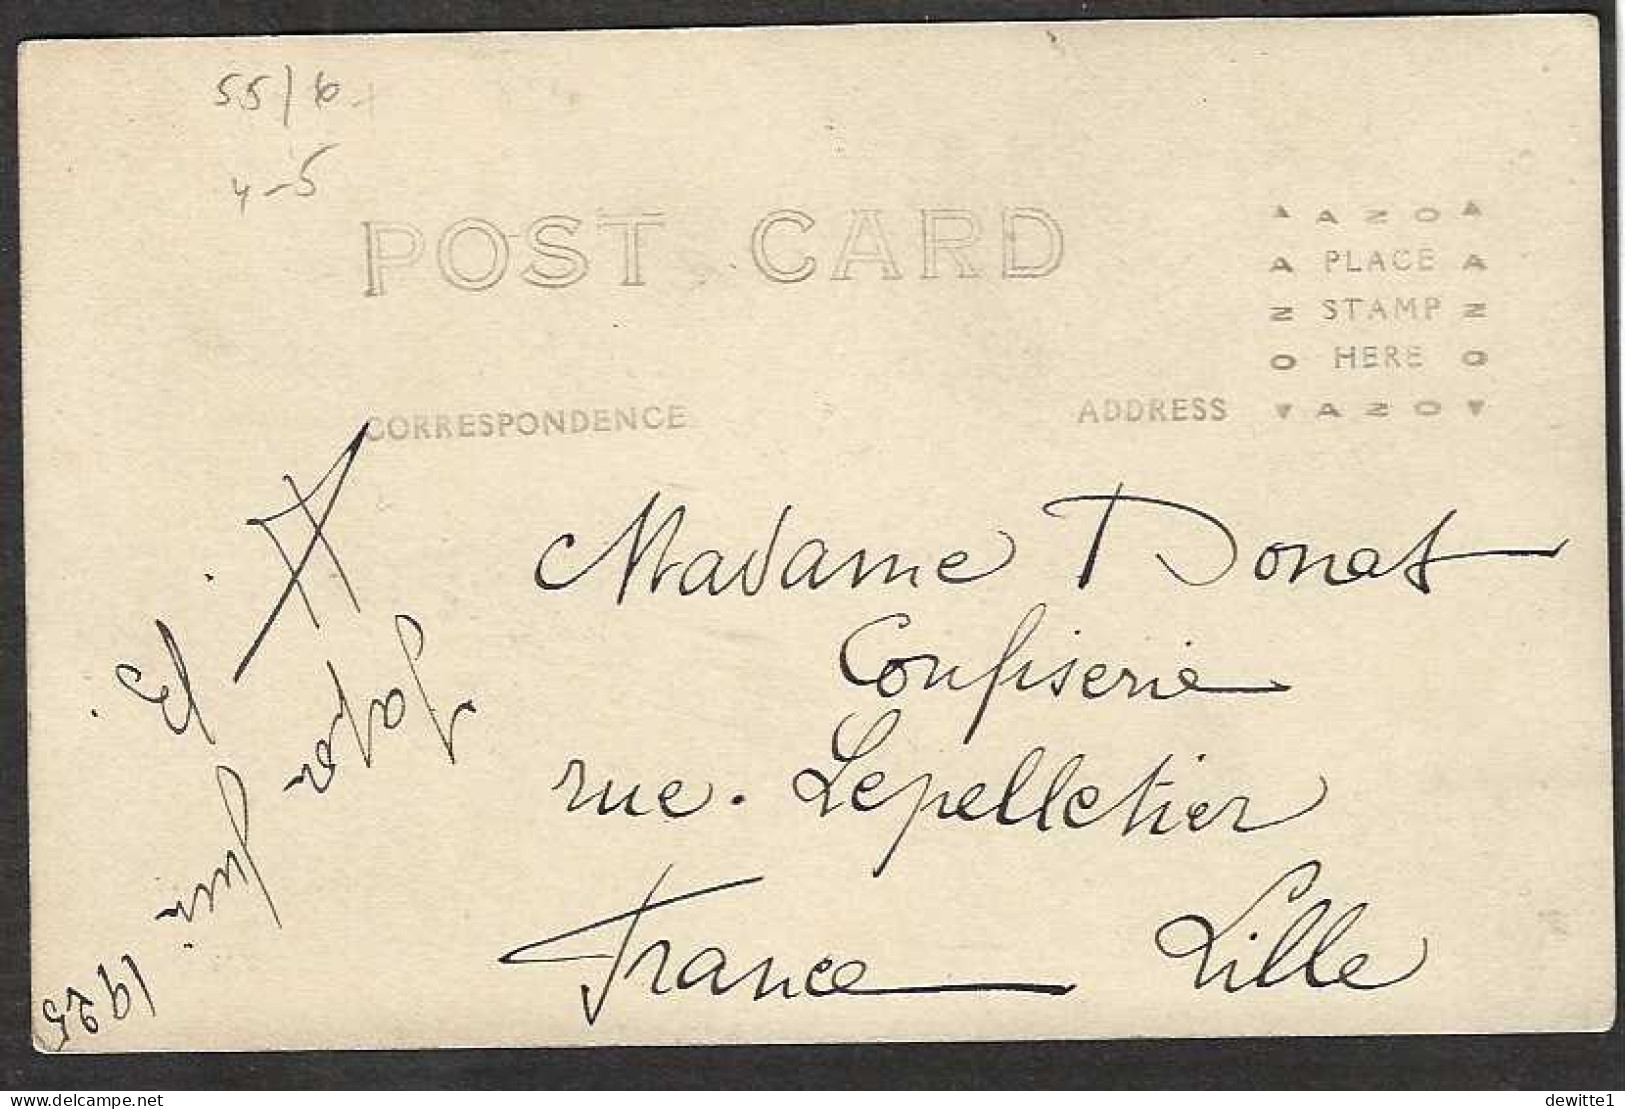 55/6
4-5
POST CARD
AZO
PLACE
STAMP
HERE
AZO
CORRESPONDENCE
ADDRESS
Madame Donat
Confiserie
rue. Lepelletier
France Lille
Juin
1925
delcampe.net
dewitte1